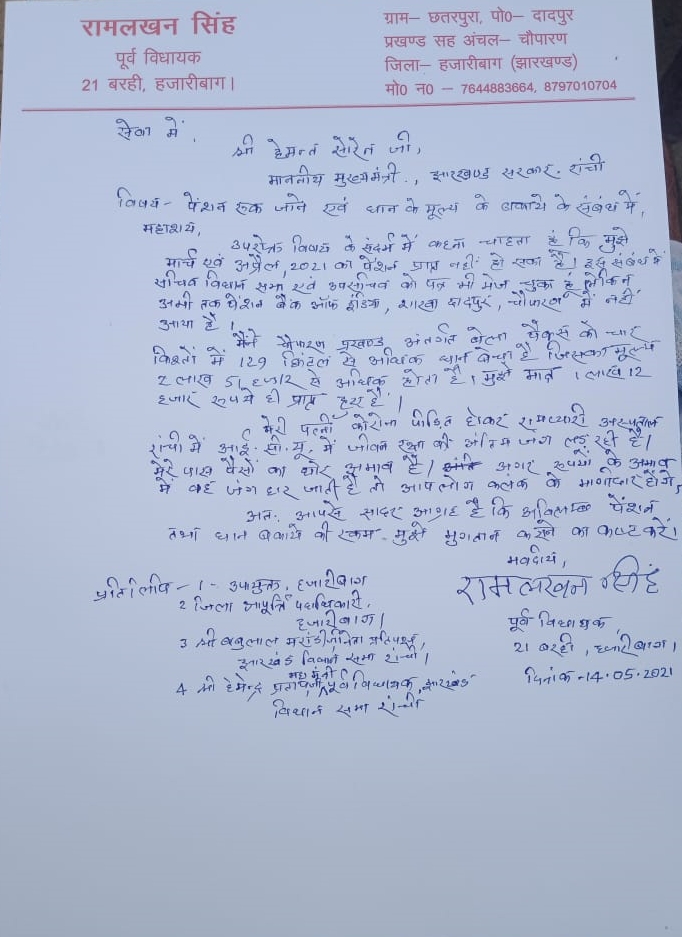 रामलखन सिंह
पूर्व विधायक
21 बरही, हजारीबाग।
ग्राम– छतरपुरा, पो0– दादपुर
प्रखण्ड सह अंचल– चौपारण
जिला– हजारीबाग (झारखण्ड)
मो0 न0 – 7644883664, 8797010704
सेवा में,
श्री हेमन्त सोरेन जी,
माननीय मुख्यमंत्री, झारखण्ड सरकार, रांची
विषय- पेंशन रूक जाने एवं धान के मूल्य के बकाये के संबंध में,
महाशय,
उपरोक्त विषय के संदर्भ में कहना चाहता हूं कि मुझे
मार्च एवं अप्रैल, 2021 का पेंशन प्राप्त नहीं हो सका है। इस संबंध में
सचिव विधान सभा एवं उपसचिव को पत्र भी भेज चुका हूं लेकिन
अभी तक पेंशन बैंक ऑफ इंडिया, शाखा दादपुर, चौपारण में नहीं
आया है।
मैंने चौपारण प्रखण्ड अंतर्गत बेला पैक्स को चार
किश्तों में 129 क्विंटल से अधिक धान बेचा है जिसका मूल्य
2 लाख 51 हजार से अधिक होता है। मुझे मात्र 1 लाख 12
हजार रूपये ही प्राप्त हुए हैं।
मेरी पत्नी कोरोना पीड़ित होकर रामप्यारी अस्पताल
रांची में आई. सी. यू. में जीवन रक्षा की अंतिम जंग लड़ रही है।
मेरे पास पैसों का घोर अभाव है। अगर रूपयों के अभाव
में वह जंग हार जाती है तो आपलोग कलंक के भागीदार होंगे,
अतः आपसे सादर आग्रह है कि अविलम्ब पेंशन
तथा धान बकाये की रकम मुझे भुगतान करने का कष्ट करें।
भवदीय,
रामलखन सिंह
पूर्व विधायक,
21 बरही, हजारीबाग।
दिनांक-14.05.2021
प्रतिलिपि-1- उपायुक्त, हजारीबाग
2 जिला आपूर्ति पदाधिकारी,
हजारीबाग।
3 श्री बाबुलाल मरांडी, नेता प्रतिपक्ष,
झारखंड विधान सभा रांची।
महामंत्री
4 श्री हेमेन्द्र प्रताप जी, पूर्व विधायक, झारखंड
विधान सभा रांची